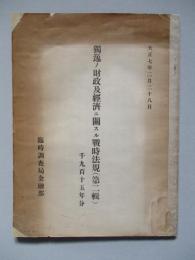 大正七年二月二十八日
獨逸ノ財政及經濟ニ關スル戰時法規（第二輯）
千九百十五年分
臨時調査局金融部